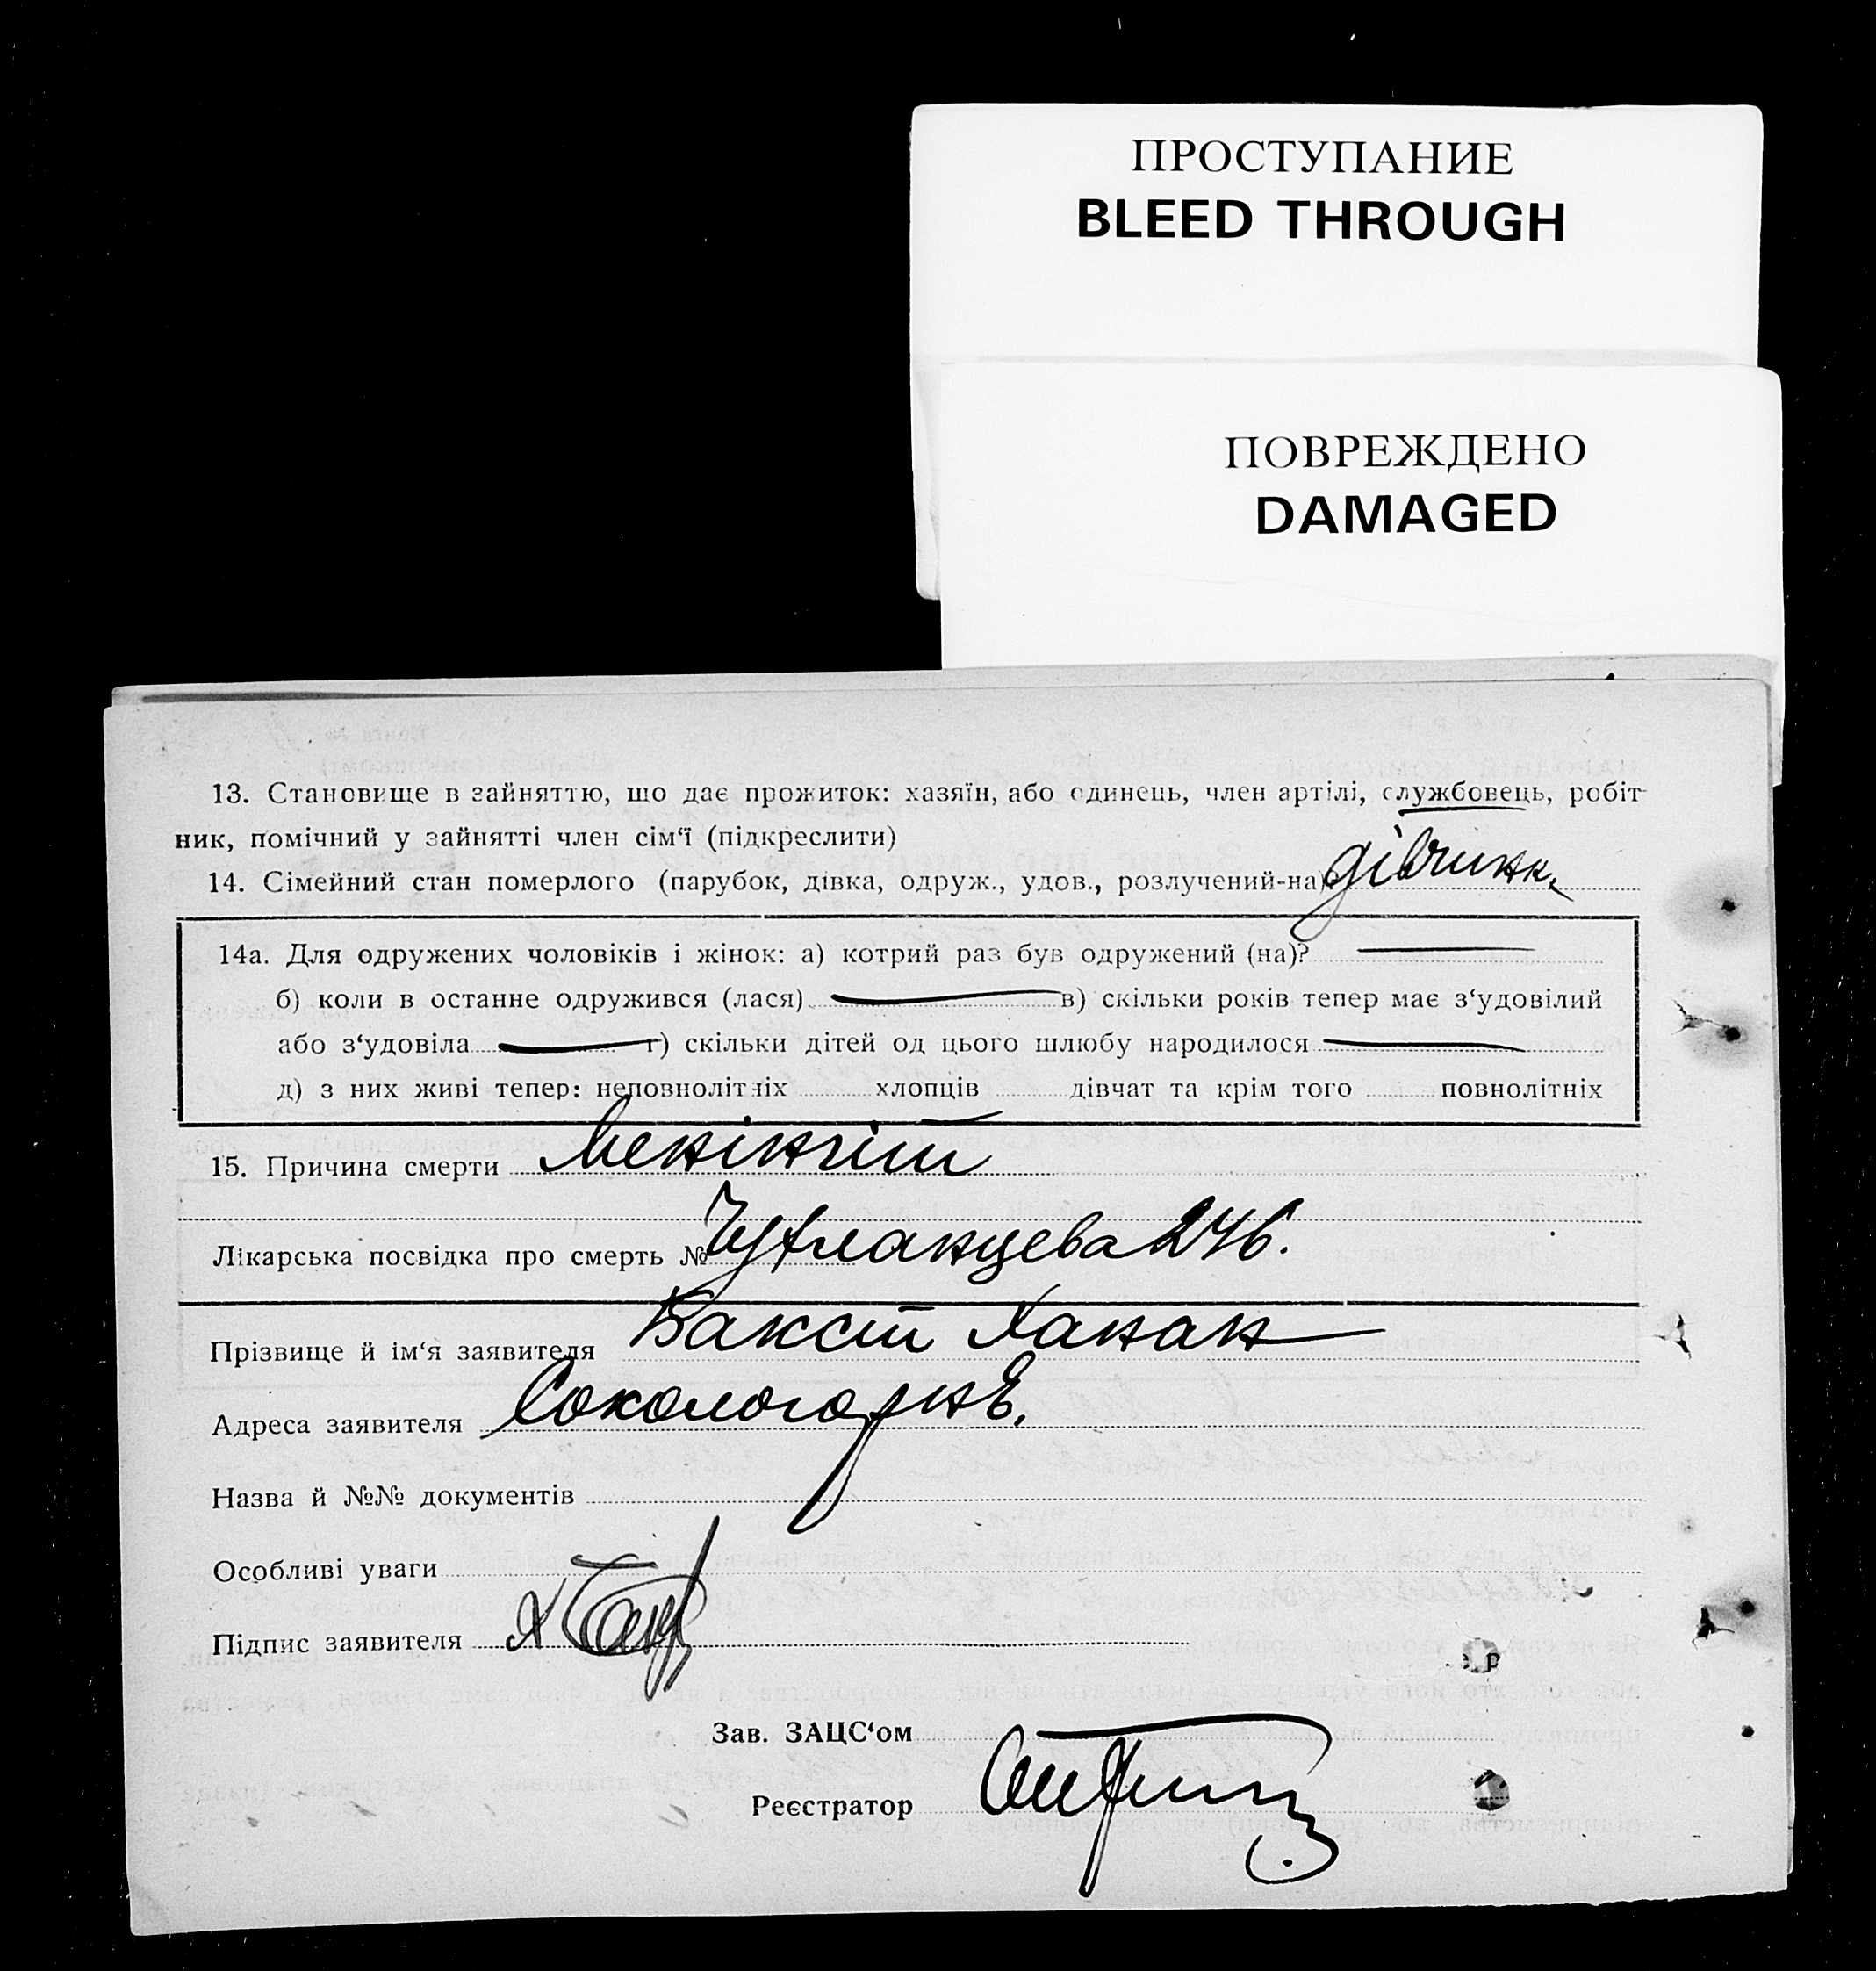 ПРОСТУПАНИЕ
BLEED THROUGH
ПОВРЕЖДЕНО
DAMAGED
13. Становище в зайняттю, що дає прожиток: хазяїн, або одинець, член артілі, службовець, робіт-
ник, помічний у зайнятті член сім‘ї (підкреслити)
14. Сімейний стан померлого (парубок, дівка, одруж., удов., розлучений-на) дівчинк.
14а. Для одружених чоловіків і жінок: а) котрий раз був одружений (на)?
б) коли в останне одружився (лася) в) скільки років тепер має з‘удовілий
або з‘удовіла г) скільки дітей од цього шлюбу народилося
д) з них живі тепер: неповнолітніх хлопців дівчат та крім того повнолітніх
15. Причина смерти Менінгіт
Лікарська посвідка про смерть № 246.
Прізвище й ім‘я заявителя Бакст Ханан
Адреса заявителя Сокологорнє.
Назва й №№ документів
Особливі уваги
Підпис заявителя
Зав. ЗАЦС‘ом
Реєстратор